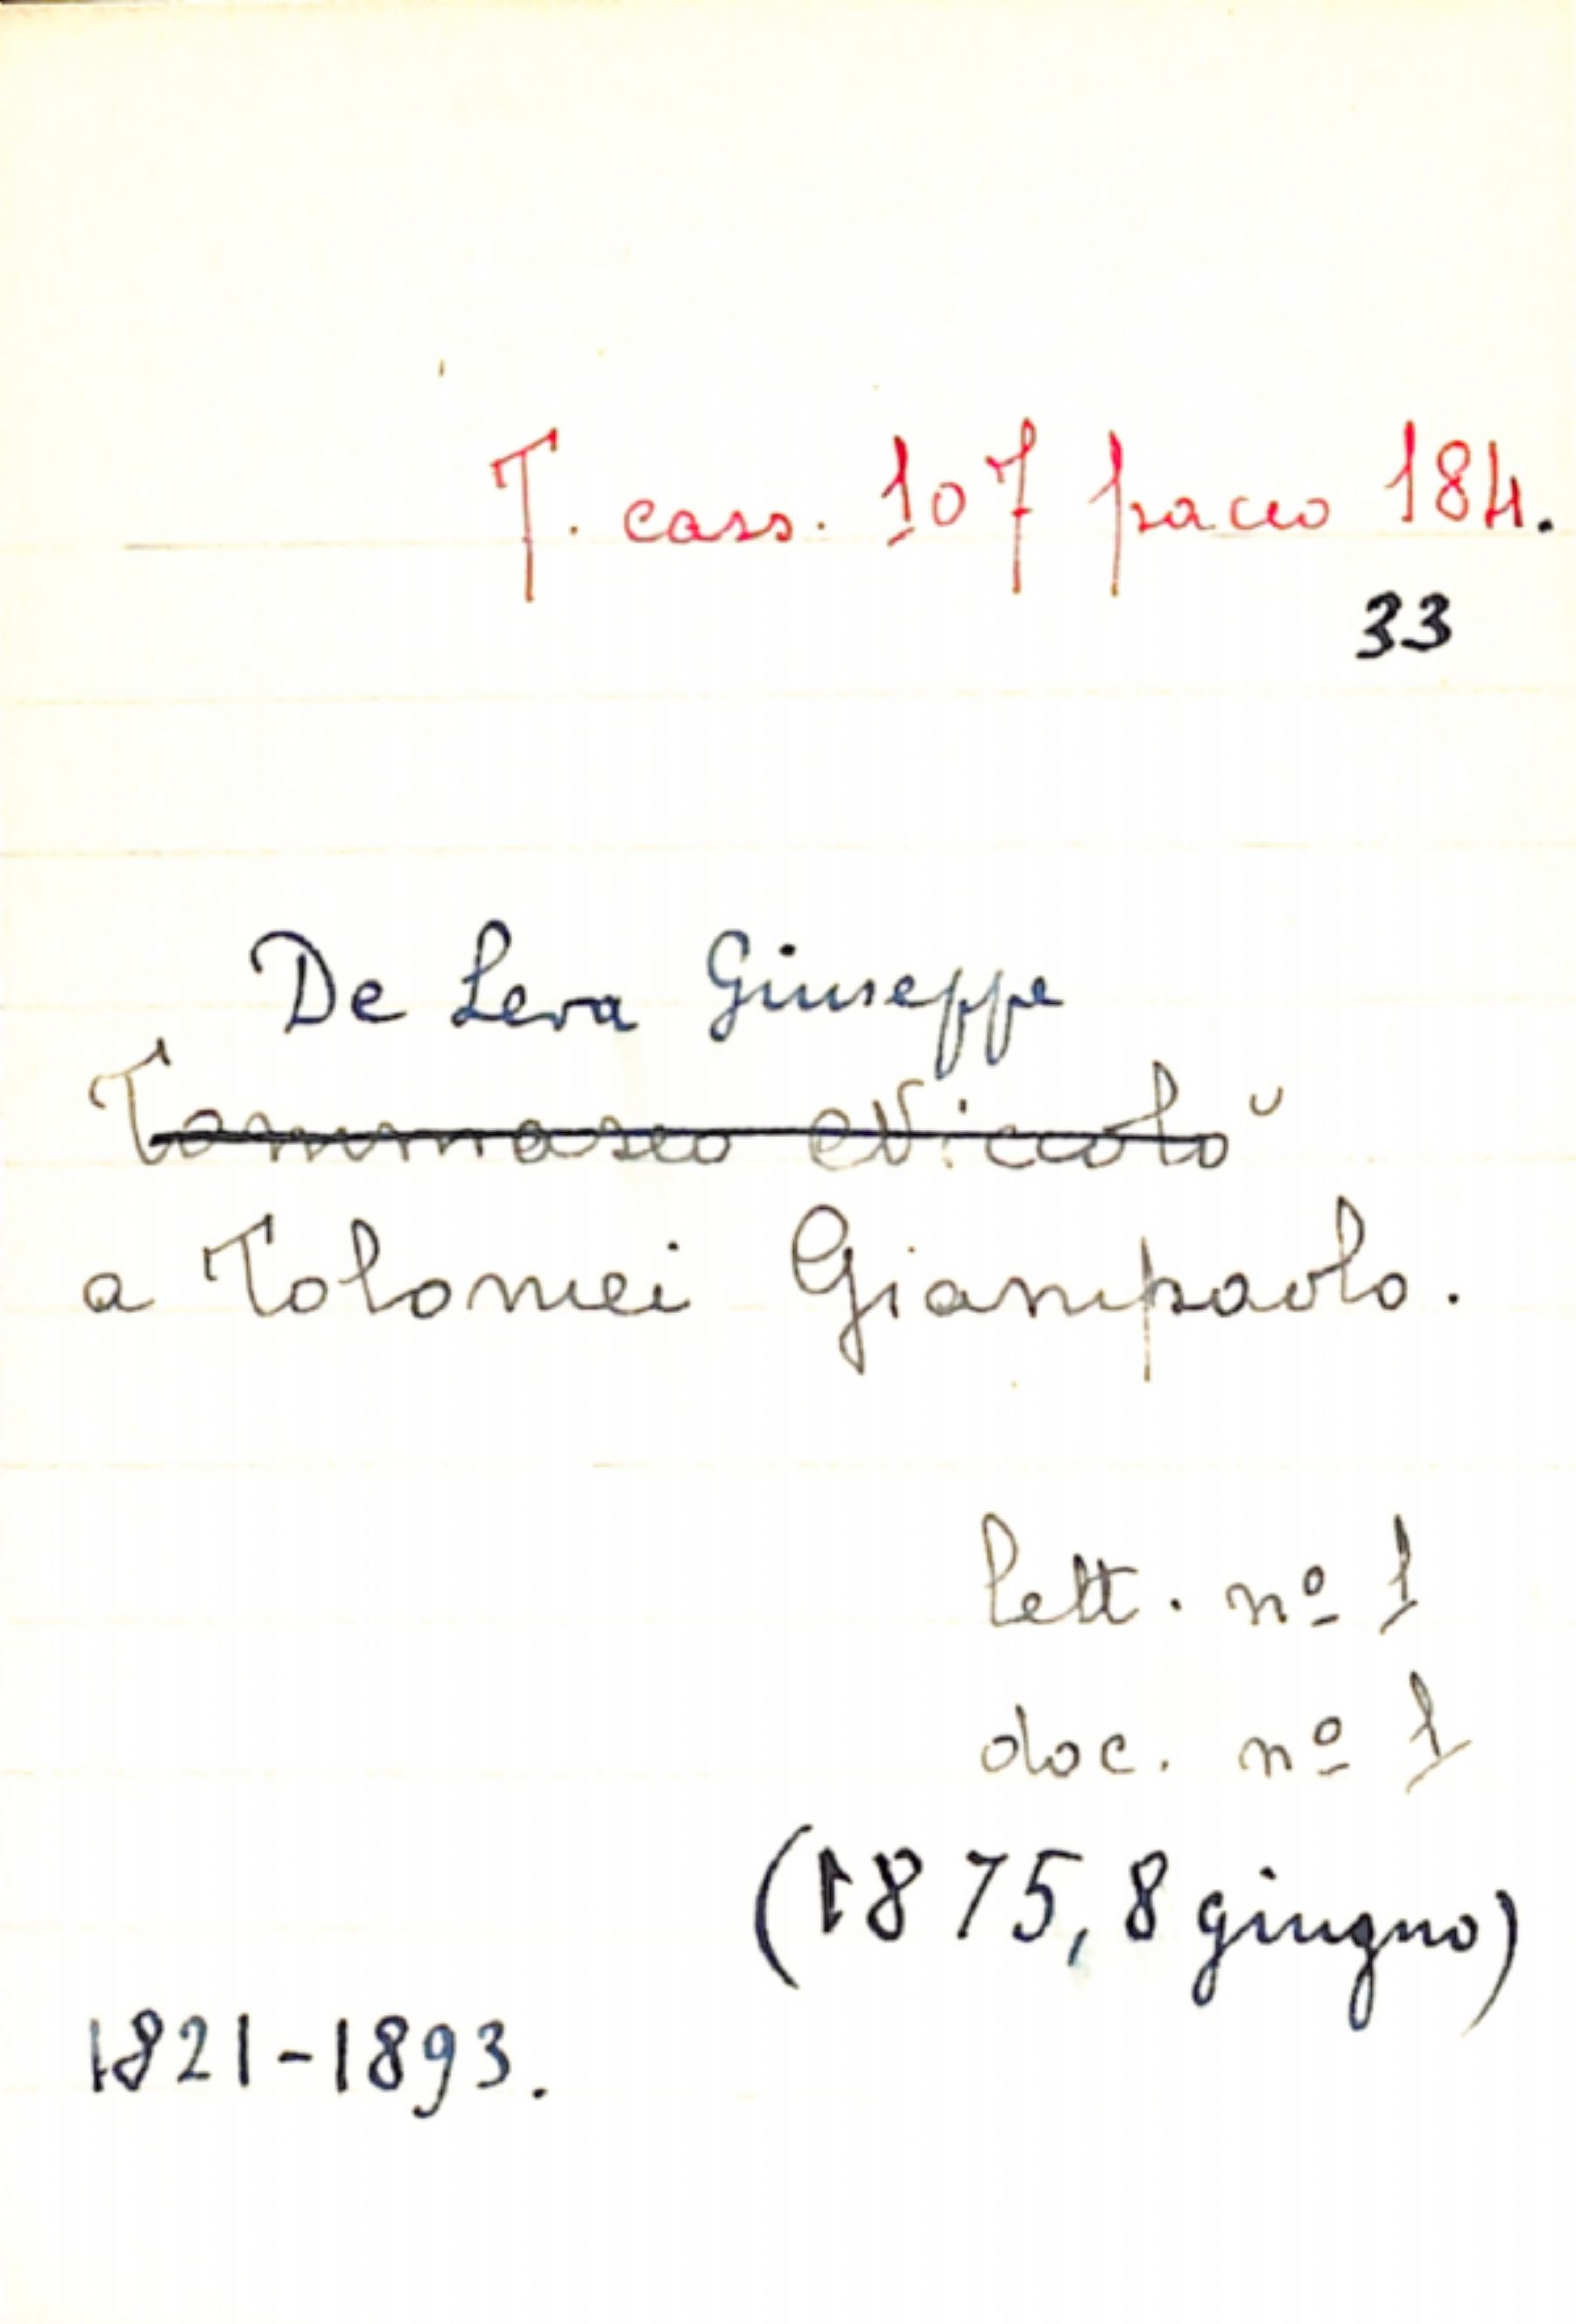 T. cass. 107 pacco 184.
33
De Leva Giuseppe
Tommaseo Niccolò
a Tolomei Giampaolo.
lett. nº 1
doc. nº 1
(1875, 8 giugno)
1821-1893.